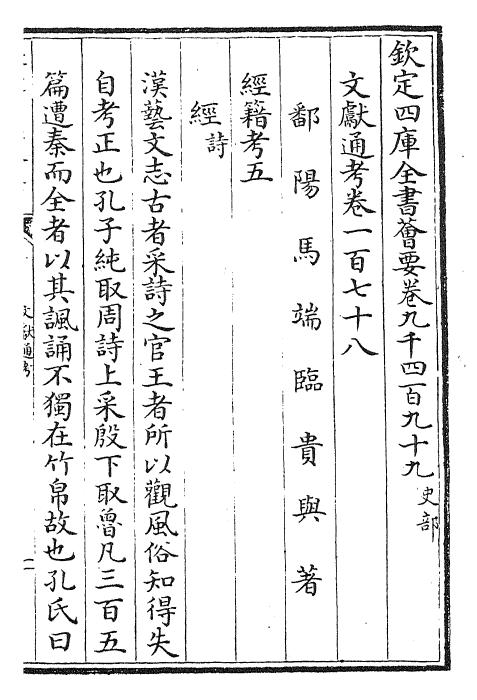 欽定四庫全書薈要卷九千四百九十九史部
文獻通考卷一百七十八
鄱陽馬端臨貴與著
經籍考五
經詩
漢藝文志古者采詩之官王者所以觀風俗知得失
自考正也孔子純取周詩上采殷下取魯凡三百五
篇遭秦而全者以其諷誦不獨在竹帛故也孔氏曰
文獻通考